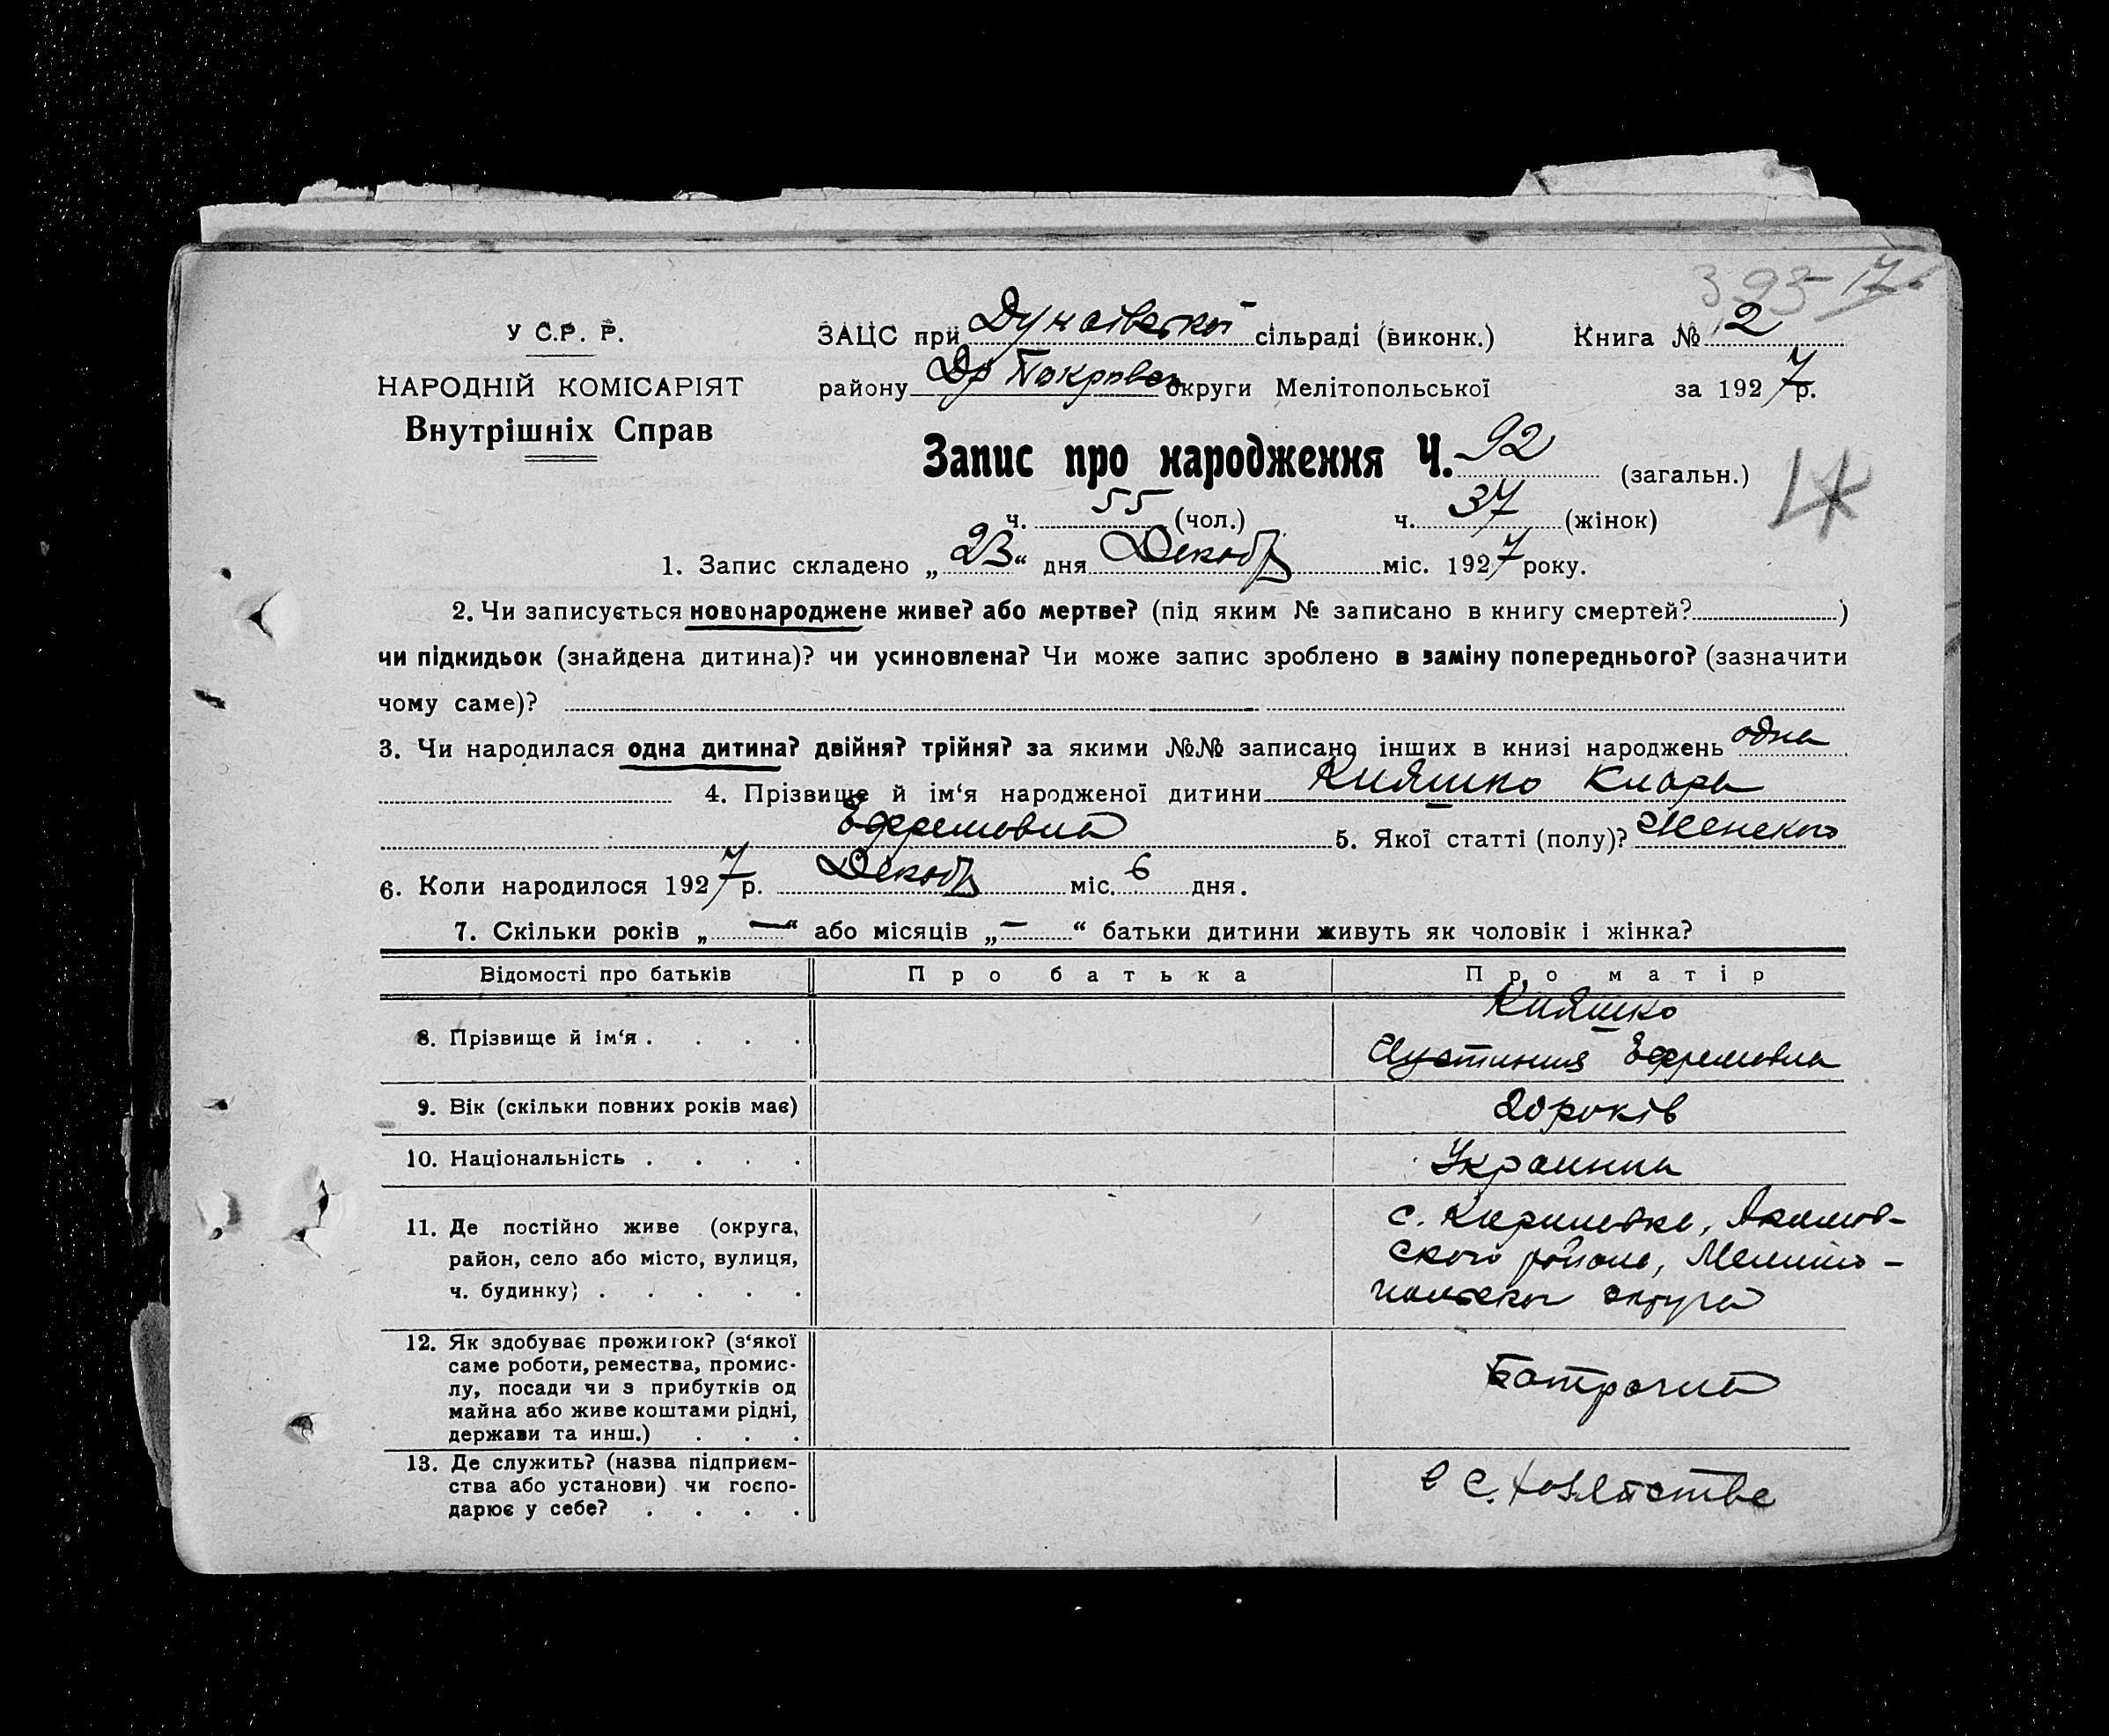 393 17
У С.Р. Р.
НАРОДНІЙ КОМІСАРІЯТ
Внутрішніх Справ
ЗАЦС при Дунаївской сільраді (виконк.) Книга № 2
району Др Покровск округи Мелітопольської за 1927 р.
Запис про народження Ч. 92 (загальн.)
ч. 55 (чол.) ч. 37 (жінок)
1. Запис складено „23“ дня Декабр міс. 1927 року.
2. Чи записується новонароджене живе? або мертве? (під яким № записано в книгу смертей?)
чи підкидьок (знайдена дитина)? чи усиновлена? Чи може запис зроблено в заміну попереднього? (зазначити
чому саме)?
3. Чи народилася одна дитина? двійня? трійня? за якими №№ записано інших в книзі народжень одна
4. Прізвище й ім‘я народженої дитини Кияшко Клара
Ефремовна 5. Якої статті (полу)? Женского
6. Коли народилося 1927 р. Декабр міс. 6 дня.
7. Скільки років „—“ або місяців „—“ батьки дитини живуть як чоловік і жінка?
Відомості про батьків Про батька Про матір
8. Прізвище й ім‘я . . . . Кияшко
Иустиния Ефремовна
9. Вік (скільки повних років має) 20 років
10. Національність . . . . Украинка
11. Де постійно живе (округа,
район, село або місто, вулиця,
ч. будинку) . . . . .
с. Кириловка, Акимов-
ского района, Мелито-
польской округа
12. Як здобуває прожиток? (з‘якої
саме роботи, ремества, промис-
лу, посади чи з прибутків од
майна або живе коштами рідні,
держави та инш.) . . .
Батрачка
13. Де служить? (назва підприєм-
ства або установи) чи госпо-
дарює у себе? . . . .
в с. хозяйстве